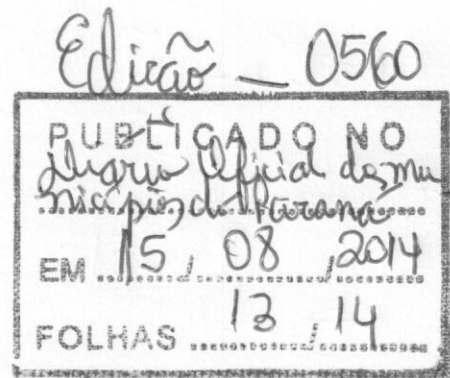 Edição — 0560
PUBLICADO NO
Diário Oficial dos mu
nicípios do Paraná
EM 15 / 08 / 2014
FOLHAS 13 / 14